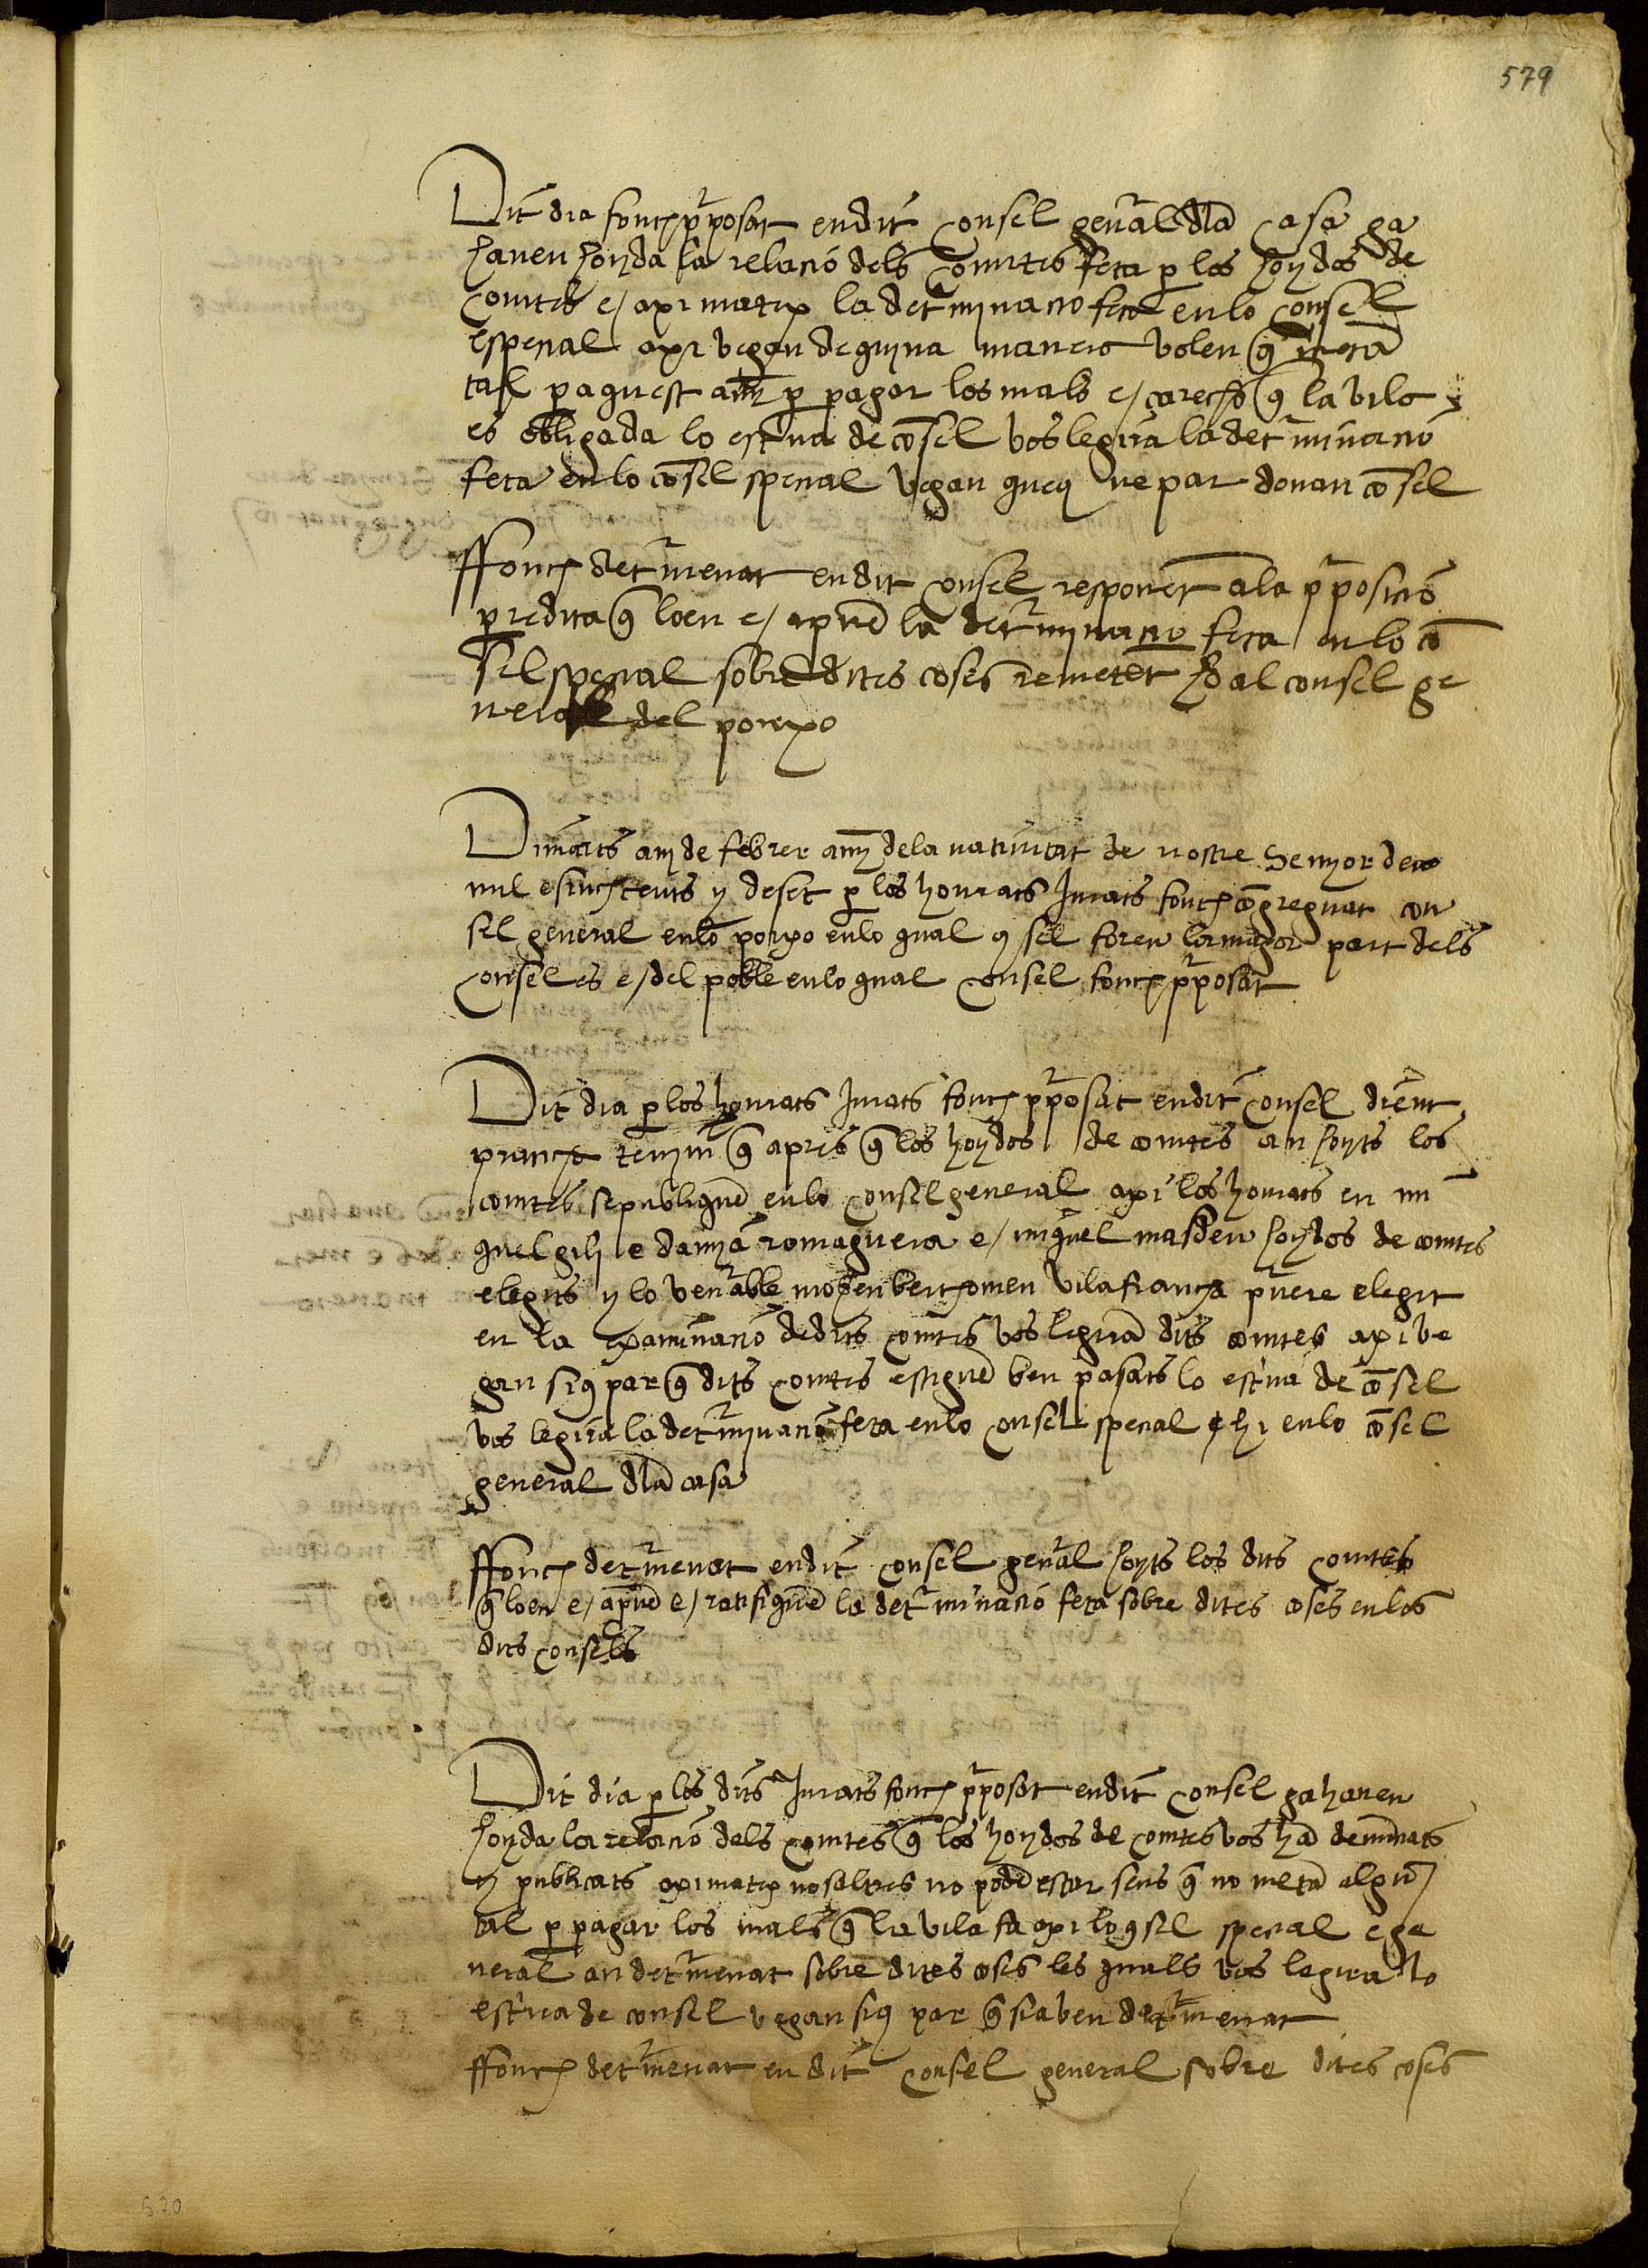 579
Dit dia fonch pposat en dit consel genal dla casa ga
haueu hoyda la relació dels Comtes feta p los hoydos de
comtes e/ axi matex la detminacio feta en lo consel
especial axi vegau de quina manera volen q meta
tall p aquest any p pagar los mals e/ carechs q la vila
es obligada lo escriua de cosel vos legira la detminacio
feta en lo cosel special vegau queus ne par donau cosel
ffonch detmenat en dit consel responet a la pposicio
predita q loen e/ aproue la detminacio feta en lo co
sel special sobre dites coses remetet ho al consel ge
neral del porxo
Dimars a iij de febrer any dela natiuitat de nostre Senyor deu
mil e sinch cens y deset p los honrats Jurats fonch cogreguat con
sel general en lo porxo en lo qual 9sel foren la major part dels
conseles e/ del poble en lo qual consel fonch pposat
Dit dia p los honrats Jurats fonch pposat en dit consel dient
pratica tenim q apres q los hoydos de comtes an hoyts los
comtes se publique en lo consel general axi los honrats en mi
quel gili e damya romaguera e/ miquel masdeu hoydos de comtes
elegits y lo venable mosen bertomeu vilafrancha preuere elegit
en la examinacio de dits comtes vos legira dits comtes axi ve
gau sius par q dits comtes estigue ben pasats lo escriua de cosel
vos legira la detminacio feta en lo consel special e hi en lo cosel
general dla casa
ffonch detmenat en dit consel genal hoyts los dits comtes
q loen e/ aproue e/ ratifique la detminació feta sobre dites coses en los
dits consels
Dit dia p los dits Jurats fonch pposat en dit consel ga haueu
hoyda la relacio dels comtes q los hoydos de comtes vos ha denunciats
y publicats axi matex nosaltres no pode estar sens q no meta algu
tal p pagar los mals q la vila fa axi lo 9sel special e ge
neral an detmenat sobre dites coses les quals vos legira lo
escriua de consel vegau sius par q sia ben detmenat
ffonch detmenat en dit consel general sobre dites coses
570